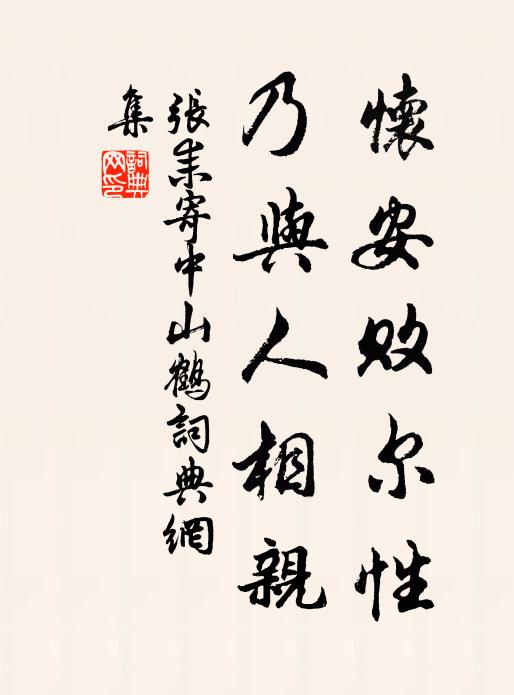 懷安敗尔性
乃與人相親
張耒寄中山鶴詞典網
集
詞典
网印